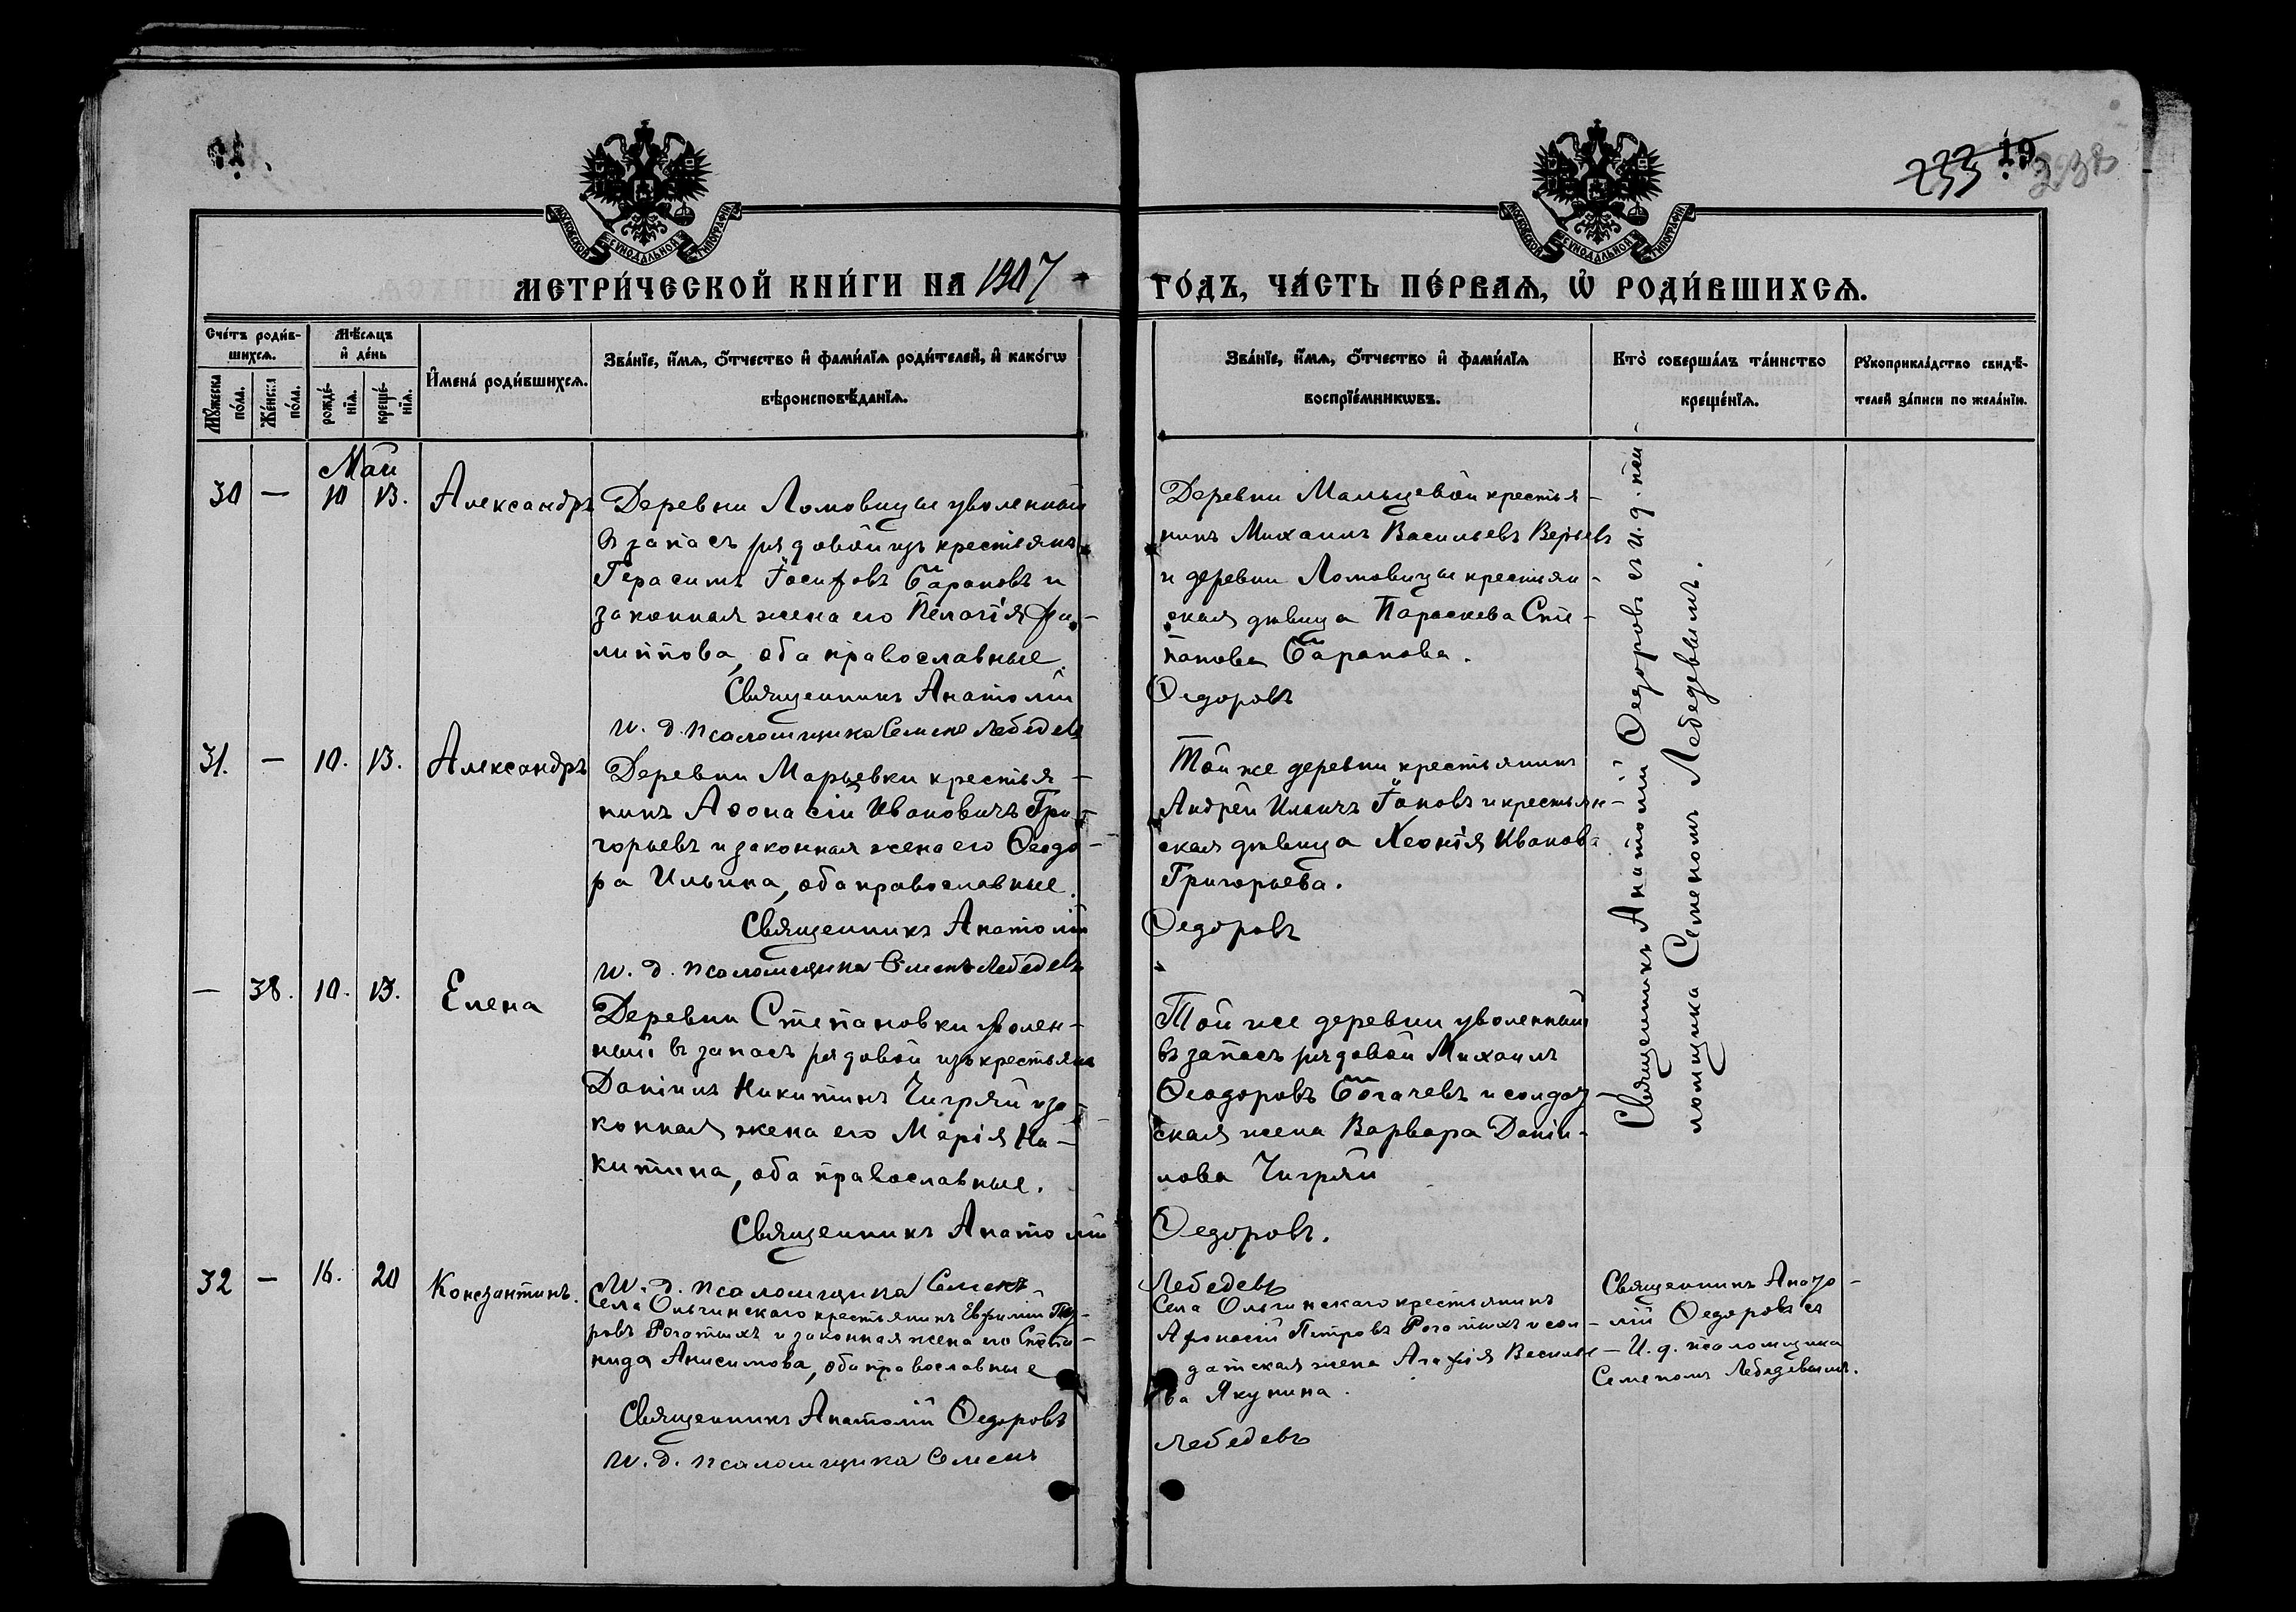 233 19 238
МОСКОВСКОЙ СѴНОДАЛЬНОЙ ТИПОГРАФІИ
МОСКОВСКОЙ СѴНОДАЛЬНОЙ ТИПОГРАФІИ
МЕТРИ́ЧЕСКОЙ КНИ́ГИ НА 1907
ГО́ДЪ, ЧА́СТЬ ПЕ́РВАѦ, Ѡ҆ РОДИ́ВШИХСѦ.
Сче́тъ роди́в-
шихсѧ.
Мѣ́сѧцъ
и҆ де́нь
Мꙋ́жеска по́ла.
Же́нска по́ла.
рожде́-
нїѧ.
креще́-
нїѧ.
И҆мена̀ роди́вшихсѧ.
Зва́нїе, и҆́мѧ, ѻ҆́тчество и҆ фами́лїѧ роди́телей, и҆ како́гѡ
вѣроисповѣ́данїѧ.
Зва́нїе, и҆́мѧ, ѻ҆́тчество и҆ фами́лїѧ
воспрїе́мникѡвъ.
Кто̀ соверша́лъ та́инство
креще́нїѧ.
Рꙋкоприкла́дство свидѣ́-
телей за́писи по жела́нїю.
Май
30 — 10 13. Александръ
Деревни Ломовицы уволенный
въ запасъ рядовой изъ крестьянъ
Герасимъ Іосифовъ Барановъ и
законная жена его Пелагія Фи-
липпова, оба православные.
Священникъ Анатолій
И. д. псаломщика Семенъ Лебедевъ
Деревни Мальцевой крестья-
нинъ Михаилъ Васильевъ
и деревни Ломовицы крестьян-
ская дѣвица Параскева Сте-
панова Баранова.
Федоровъ
31. — 10. 13. Александръ
Деревни Марьевки крестья-
нинъ Аѳонасій Ивановичъ Гри-
горьевъ и законная жена его Ѳеодо-
ра Ильина, оба православные.
Священникъ Анатолій
И. д. псаломщика Семенъ Лебедевъ
Той же деревни крестьянинъ
Андрей Ильичъ Іоновъ и крестьян-
ская дѣвица Хеонія Иванова
Григорьева.
Федоровъ
— 38. 10. 13. Елена
Деревни Степановки уволен-
ный въ запасъ рядовой изъ крестьянъ
Даніилъ Никитинъ Чигряй и за-
конная жена его Марія Ни-
китина, оба православные.
Священникъ Анатолій
И. д. псаломщика Семенъ
Той же деревни уволенный
въ запасъ рядовой Михаилъ
Ѳеодоровъ Богачевъ и солдат-
ская жена Варвара Даніи-
лова Чигряй
Федоровъ.
Лебедевъ
Священникъ Анатолій Ѳедоровъ съ И. д. пса-
ломщика Семеномъ Лебедевымъ.
32 — 16. 20 Константинъ.
Села Ольгинскаго крестьянинъ Евфимій Пет-
ровъ Рогатыхъ и законная жена его Степа-
нида Анисимова, оба православные
Священникъ Анатолій Федоровъ
И. д. псаломщика Семенъ
Села Ольгинскаго крестьянинъ
Афонасій Петровъ Рогатыхъ и сол-
датская жена Агафія Василье-
ва Якунина.
Лебедевъ
Священникъ Анато-
лій Ѳедоровъ съ
И. д. псаломщика
Семеномъ Лебедевымъ.